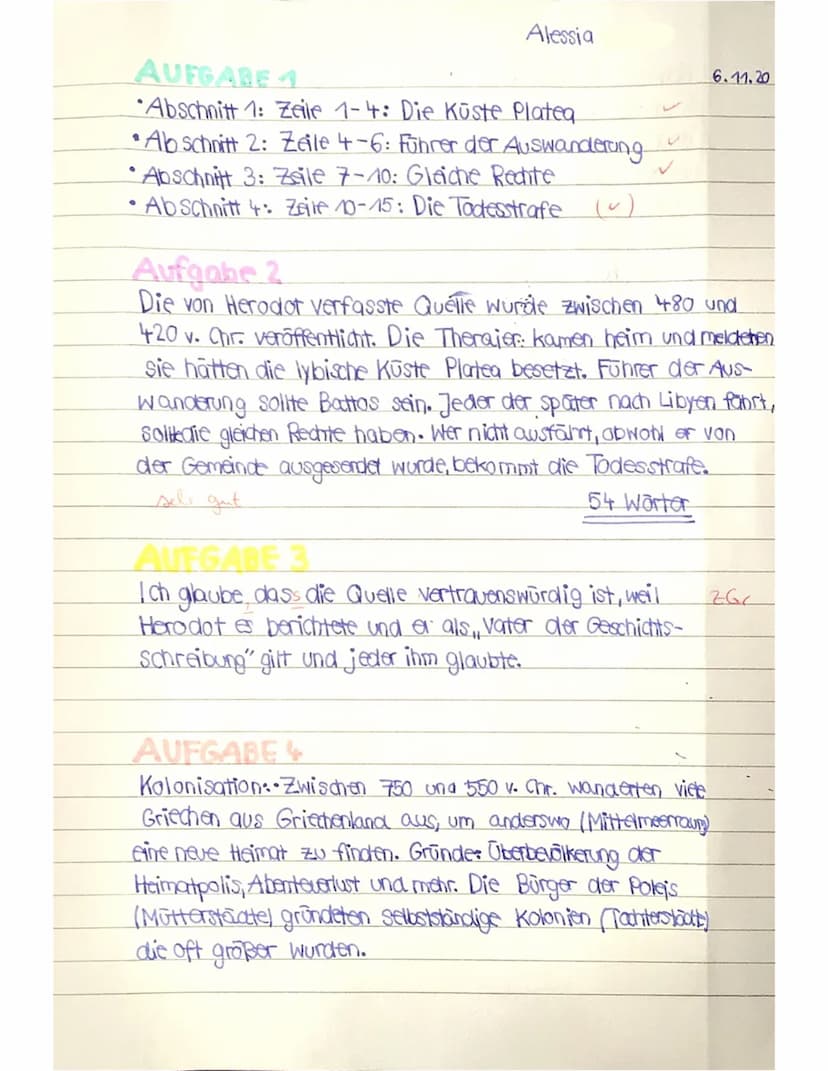 Alessia
AUFGABE 1
6.11.20
• Abschnitt 1: Zeile 1-4: Die Küste Platea ✓
• Abschnitt 2: Zeile 4-6: Führer der Auswanderung ✓
• Abschnitt 3: Zeile 7-10: Gleiche Rechte ✓
• Abschnitt 4: Zeile 10-15: Die Todesstrafe (✓)
Aufgabe 2
Die von Herodot verfasste Quelle wurde zwischen 480 und
420 v. Chr. veröffentlicht. Die Theraier: kamen heim und meldeten
sie hätten die lybische Küste Platea besetzt. Führer der Aus-
wanderung sollte Battos sein. Jeder der später nach Libyen fährt,
sollte die gleichen Rechte haben. Wer nicht ausfährt, obwohl er von
der Gemeinde ausgesendet wurde, bekommt die Todesstrafe.
sehr gut
54 Wörter
AUFGABE 3
Ich glaube, dass die Quelle vertrauenswürdig ist, weil
ZGr
Herodot es berichtete und er als „Vater der Geschichts-
schreibung" gilt und jeder ihm glaubte.
AUFGABE 4
Kolonisation: • Zwischen 750 und 550 v. Chr. wanderten viele
Griechen aus Griechenland aus, um anderswo (Mittelmeerraum)
eine neue Heimat zu finden. Gründe: Überbevölkerung der
Heimatpolis, Abenteuerlust und mehr. Die Bürger der Poleis
(Mutterstädte) gründeten selbstständige Kolonien (Tochterstädte)
die oft größer wurden.